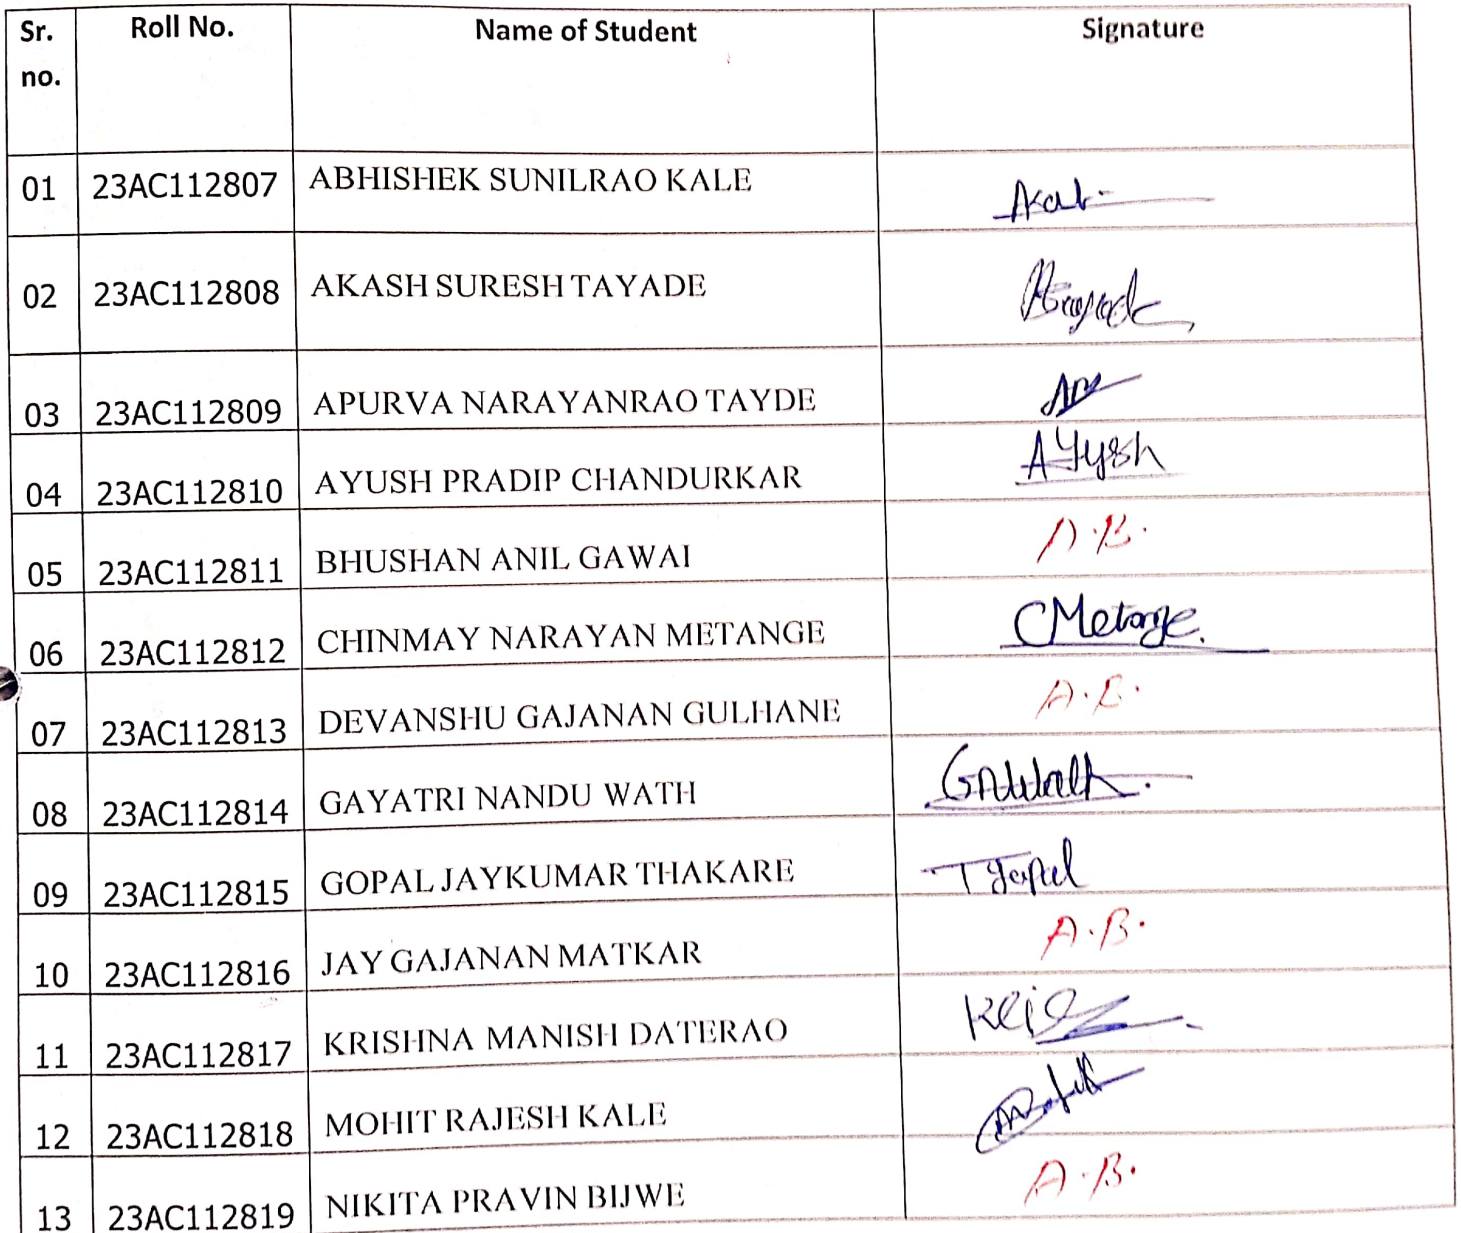 Sr. no. Roll No. Name of Student Signature
01 23AC112807 ABHISHEK SUNILRAO KALE
02 23AC112808 AKASH SURESH TAYADE
03 23AC112809 APURVA NARAYANRAO TAYDE
04 23AC112810 AYUSH PRADIP CHANDURKAR AYysh
05 23AC112811 BHUSHAN ANIL GAWAI A.B.
06 23AC112812 CHINMAY NARAYAN METANGE CMetange.
07 23AC112813 DEVANSHU GAJANAN GULHANE A.B.
08 23AC112814 GAYATRI NANDU WATH GNWath.
09 23AC112815 GOPAL JAYKUMAR THAKARE T gopal
10 23AC112816 JAY GAJANAN MATKAR A.B.
11 23AC112817 KRISHNA MANISH DATERAO
12 23AC112818 MOHIT RAJESH KALE
13 23AC112819 NIKITA PRAVIN BIJWE A.B.